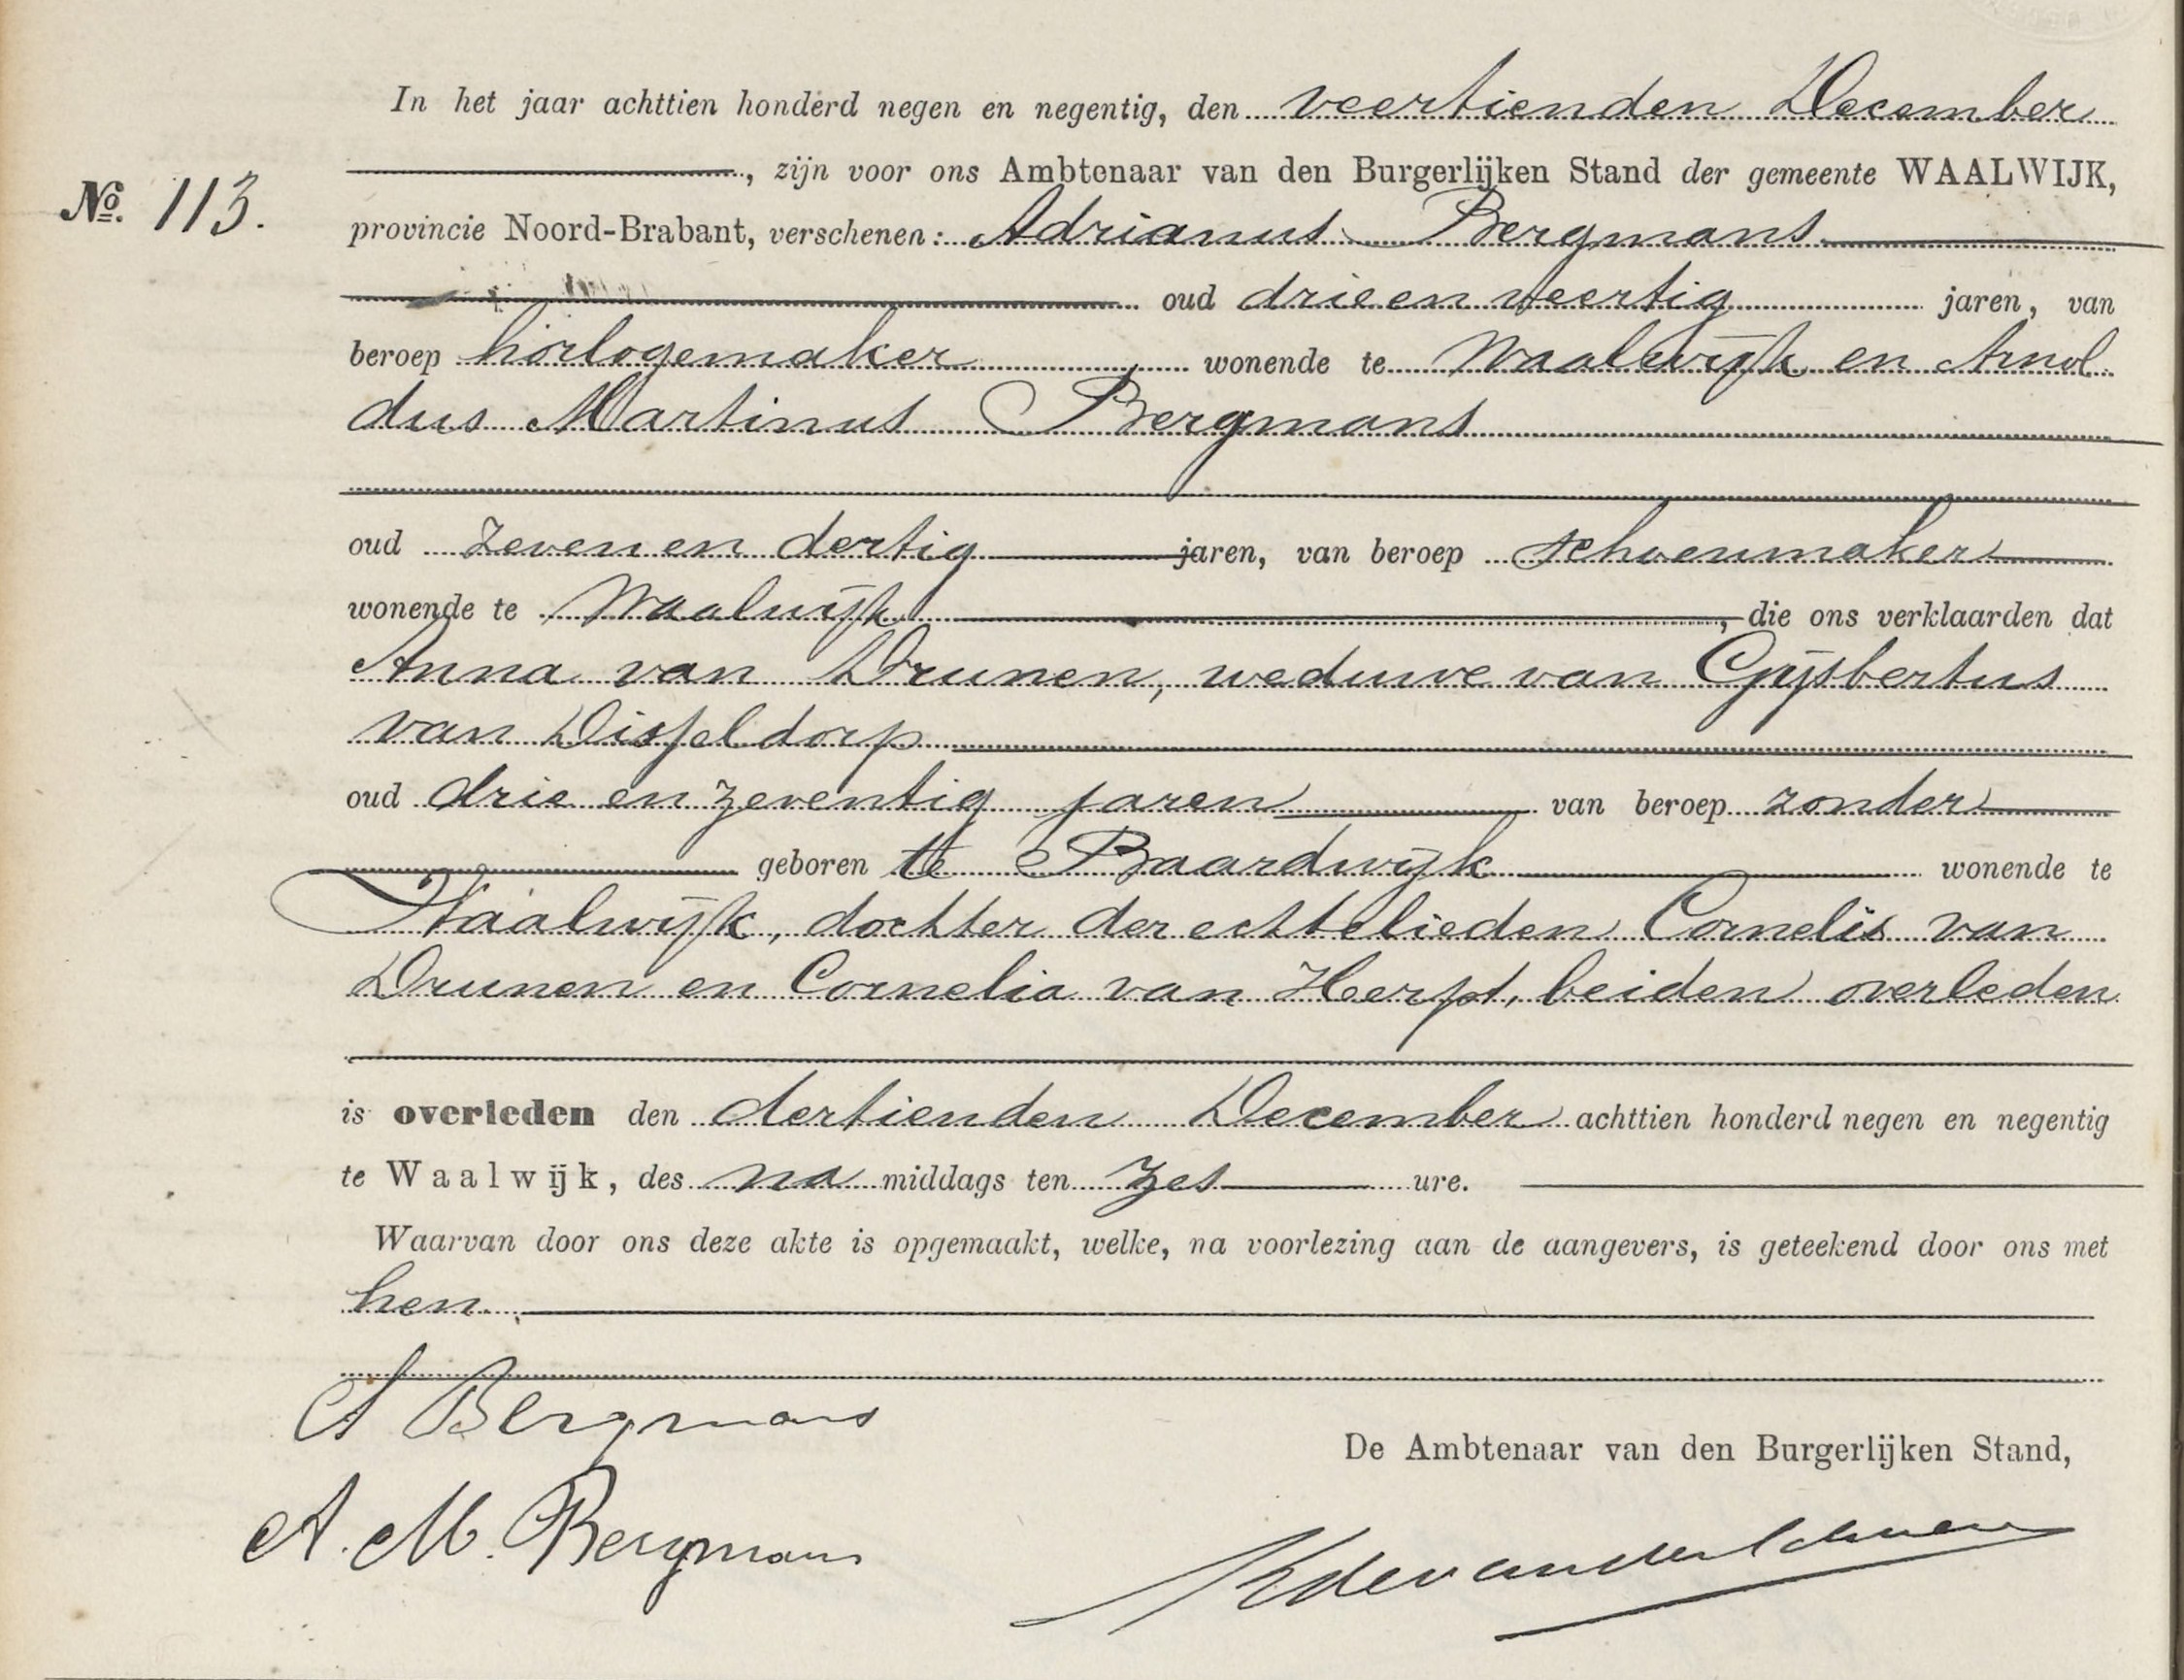 In het jaar achttien honderd negen en negentig, den veertienden December
, zijn voor ons Ambtenaar van den Burgerlijken Stand der gemeente WAALWIJK,
No. 113.
provincie Noord-Brabant, verschenen: Adrianus Bergmans
oud drie en veertig jaren, van
beroep horlogemaker wonende te Waalwijk en Arnol
dus Martinus Bergmans
oud zeven en dertig jaren, van beroep schoenmaker
wonende te Waalwijk, die ons verklaarden dat
Anna van Drunen, weduwe van Gijsbertus
van Disseldorp
oud drie en zeventig jaren van beroep zonder
geboren te Baardwijk wonende te
Waalwijk, dochter der echtelieden Cornelis van
Drunen en Cornelia van Herpt, beiden overleden
is overleden den dertienden December achttien honderd negen en negentig
te Waalwijk, des na middags ten zes ure.
Waarvan door ons deze akte is opgemaakt, welke, na voorlezing aan de aangevers, is geteekend door ons met
hen.
A Bergmans
De Ambtenaar van den Burgerlijken Stand,
A. M. Bergmans